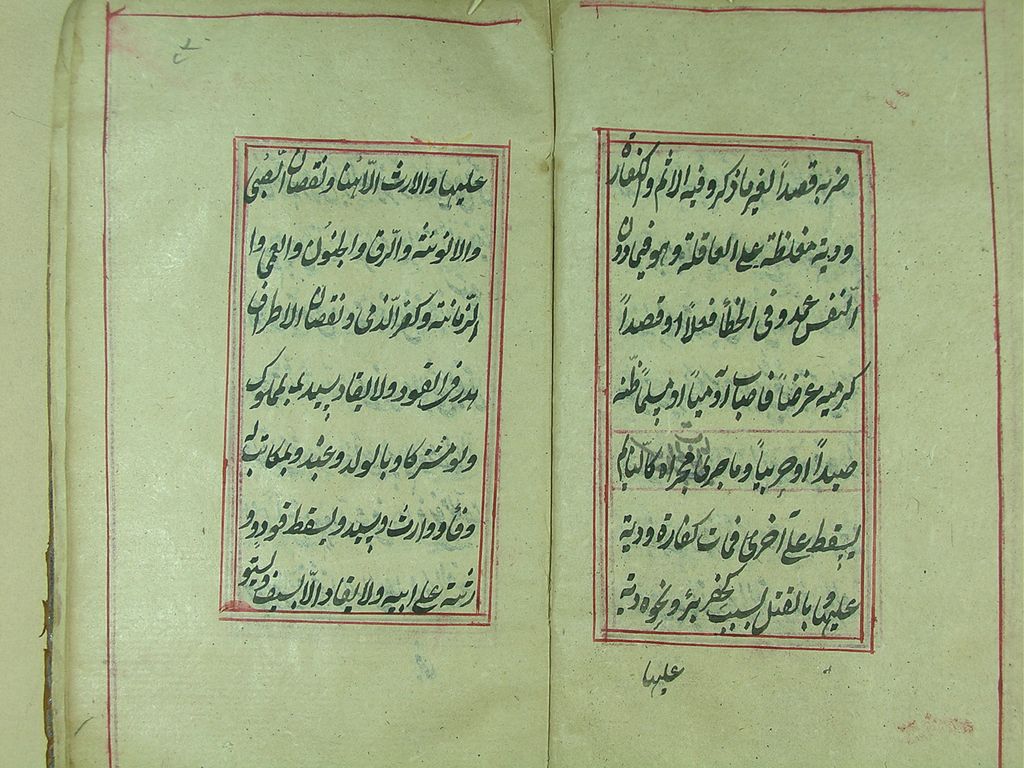 ضربه قصداً لغير ماذكر وفيه الاثم والكفارة
ودية مغلظة على العاقلة وهو فيمادون
النفس عمد وفى الخطأ فعلاً او قصداً
كرميه غرضاً فاصاب آدمياً او مسلماً ظنه
صيداً او حربياً وما جرى مجراه كالنايم
يسقط على آخرى فمات كفارة ودية
عليها وبالقتل بسبب كحفر بئر ونحوه دية
عليها
عليها والارث الا هنا ونقصان الصبى
والانوثته والرق والجنون والعمى وا
لزمانته وكفر الذمى ونقصان الاطراف
هدر فى القود ولا يقاد سيد بمملوك
ولو مشتركا وبالولد وعبده وبمكاتب له
وفاء ووارث وسيد ويسقط قود و
رثته على ابيه ولا يقاد الا بسيف ويستو